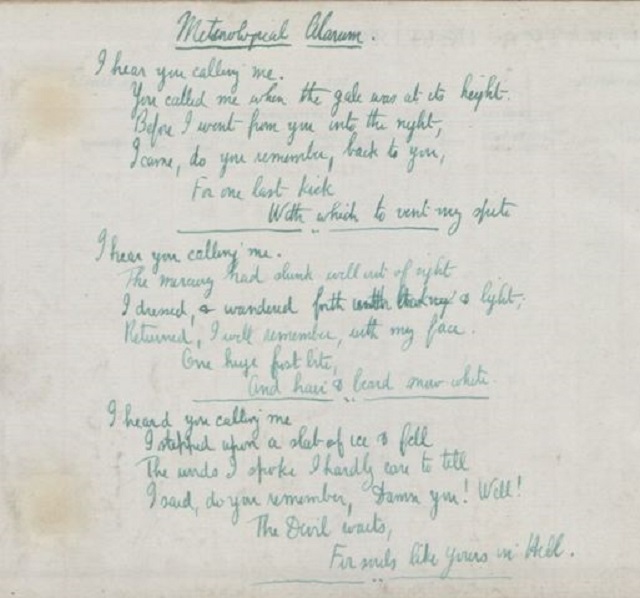 Meterological Alarum.
I hear you calling me.
You called me when the gale was at its height.
Before I went from you into the night,
I came, do you remember, back to you,
For one last kick
With which to vent my spite
I hear you calling me.
The mercury had slunk well out of sight
I dressed, & wandered forth with & light;
Returned, I well remember, with my face.
One huge frost bite,
And hair & beard snow white.
I heard you calling me
I stepped upon a slab of ice & fell
The words I spoke I hardly care to tell
I said, do you remember, Damn you! Well!
The Devil waits,
For souls like yours in Hell.